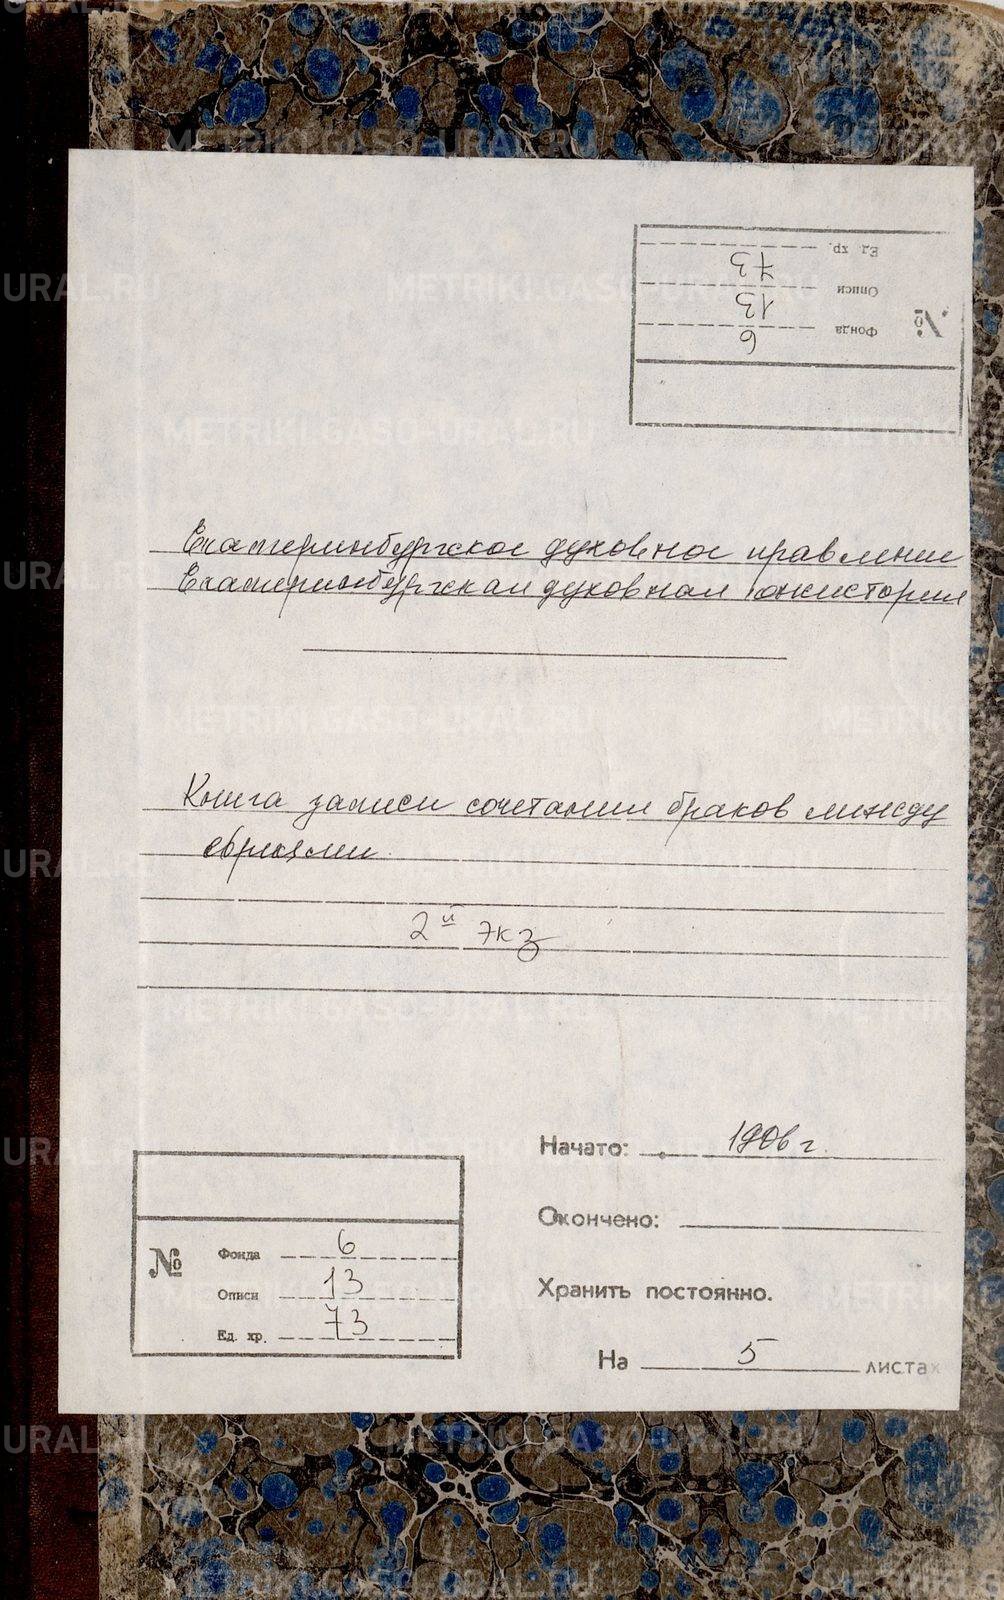 Ед. хр. 73
Описи 13
№ Фонда 6
Екатеринбургское духовное правление
Екатеринбургская духовная консистория
Книга записи сочетании браков между
евреями
2й экз
Начато: 1906 г.
Окончено:
Хранить постоянно.
На 5 листах
№ Фонда 6
Описи 13
Ед. хр. 73
METRIKI.GASO-URAL.RU